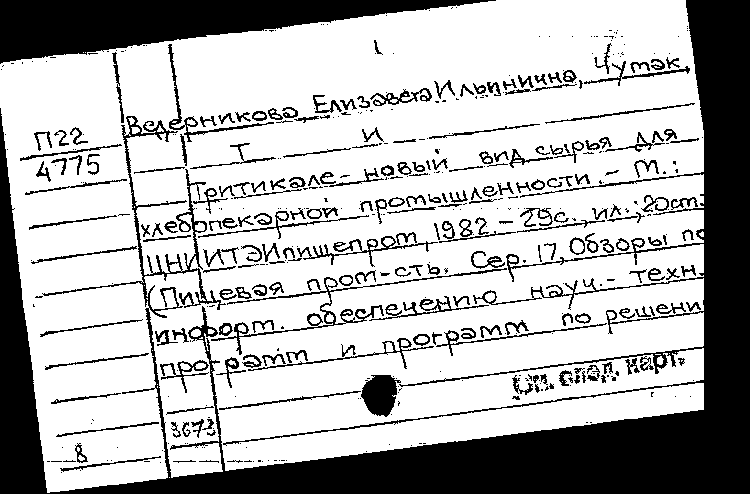 1
Ведерникова, Елизавета Ильинична, Чумак,
П22
4775
Т И
Тритикале - новый вид сырья для
хлебопекарной промышленности. - М.:
ЦНИИТЭИпищепром, 1982. - 29с., ил.; 20см.
(Пищевая пром-сть. Сер. 17, Обзоры по
информ. обеспечению науч.- техн.
программ и программ по решени
См. след. карт.
3673
8